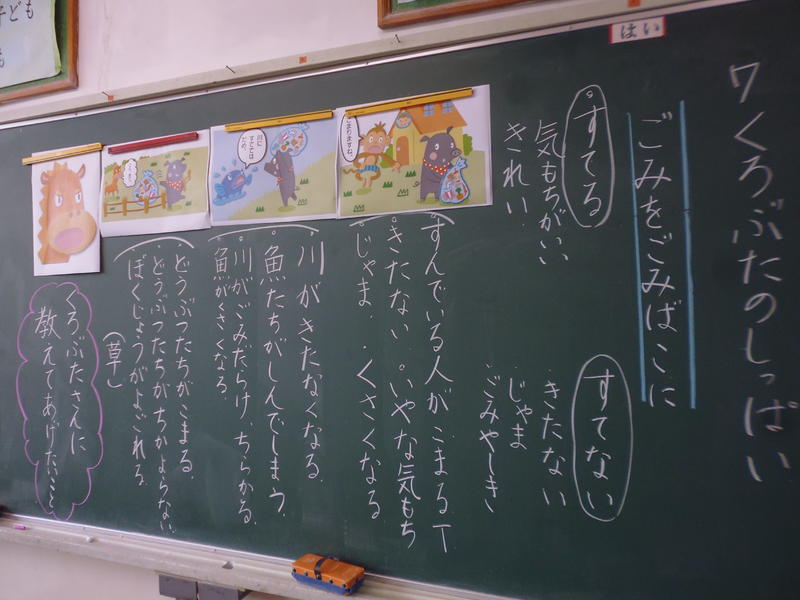 はい
7 くろぶたのしっぱい
ごみをごみばこに
すてる
気もちがいい
きれい
すてない
きたない
じゃま
ごみやしき
すんでいる人がこまる
きたない いやな気もち
じゃま くさくなる
川がきたなくなる
魚たちがしんでしまう
川がごみだらけ、ちらかる
魚がくさくなる
どうぶつたちがこまる
どうぶつたちがちかよらない
ぼくじょうがよごれる
(草)
くろぶたさんに
教えてあげたいこと
こまりますね。
川に
すてては
だめ。